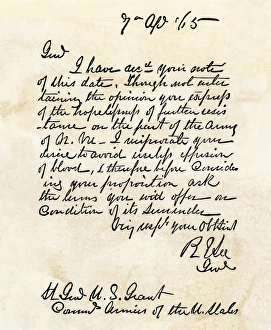 7th Apl '65
Genl
I have recd your note
of this date. Though not enter
taining the opinion you express
of the hopelessness of further resis
tance on the part of the Army
of N. Va - I reciprocate your
desire to avoid useless effusion
of blood, & therefore before Consider
ing your proposition ask
the terms you will offer on
Condition of its Surrender
Very respy your Obt Svt
R E Lee
Genl
Lt Genl U. S. Grant
Commd Armies of the U. States